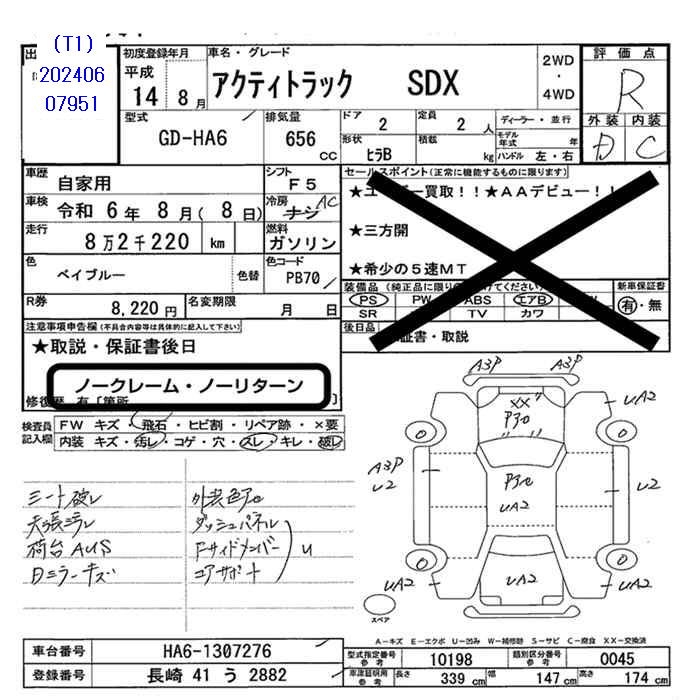 (T1)
202406
07951
出
初度登録年月
車名・グレード
2WD
・
4WD
評価点
平成
14 8月
アクティトラック SDX
R
外装 内装
D C
型式
GD-HA6
排気量
656 CC
ドア
2
定員
2 人
ディーラー・並行
モデル年式 年
形状
ヒラB
積載
kg
ハンドル 左・右
車歴
自家用
シフト
F5
セールスポイント(正常に機能するものに限ります)
車検
令和 6年 8月( 8日)
冷房
ナシ AC
★ユーザー買取!!★AAデビュー!!
★三方開
★希少の5速MT
走行
8万2千220 km
燃料
ガソリン
色
ベイブルー
色替
色コード
PB70
装備品(純正品に限り
けてください)
新車保証書
有・無
PS PW ABS エアB
SR TV カワ
R券
8,220円
名変期限
月 日
後日品
証書・取説
注意事項申告欄(不具合内容等は具体的に記入して下さい)
★取説・保証書後日
ノークレーム・ノーリターン
修復歴 有[箇所 ]
検査員記入欄
FW キズ・飛石・ヒビ割・リペア跡・×要
内装 キズ・汚レ・コゲ・穴・スレ・キレ・破レ
シート破レ
天張ミラレ
荷台AUS
Bミラーキズ
外装色アセ
ダッシュパネル
Fサイドメンバー
コアサポート
U
A3P A3P
XX
P30
UA2
A3P
U2
P30
UA2
U2
UA2
UA2
UA2
スペア
A-キズ E-エクボ U-凹み W-補修跡 S-サビ C-腐食 XX-交換済
車台番号
HA6-1307276
型式指定番号
参考
10198
類別区分番号
参考
0045
登録番号
長崎 41 う 2882
車庫証明用
参考
長さ
339 cm
幅
147 cm
高さ
174 cm